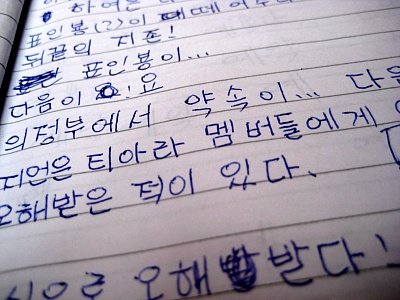 하여튼
표인봉(2)이 때
뒤끝의 지존!
표인봉이...
다음이 요
의정부에서 약속이... 다음
지언은 티아라 멤버들에게
오해받은 적이 있다.
으로 오해 받다!